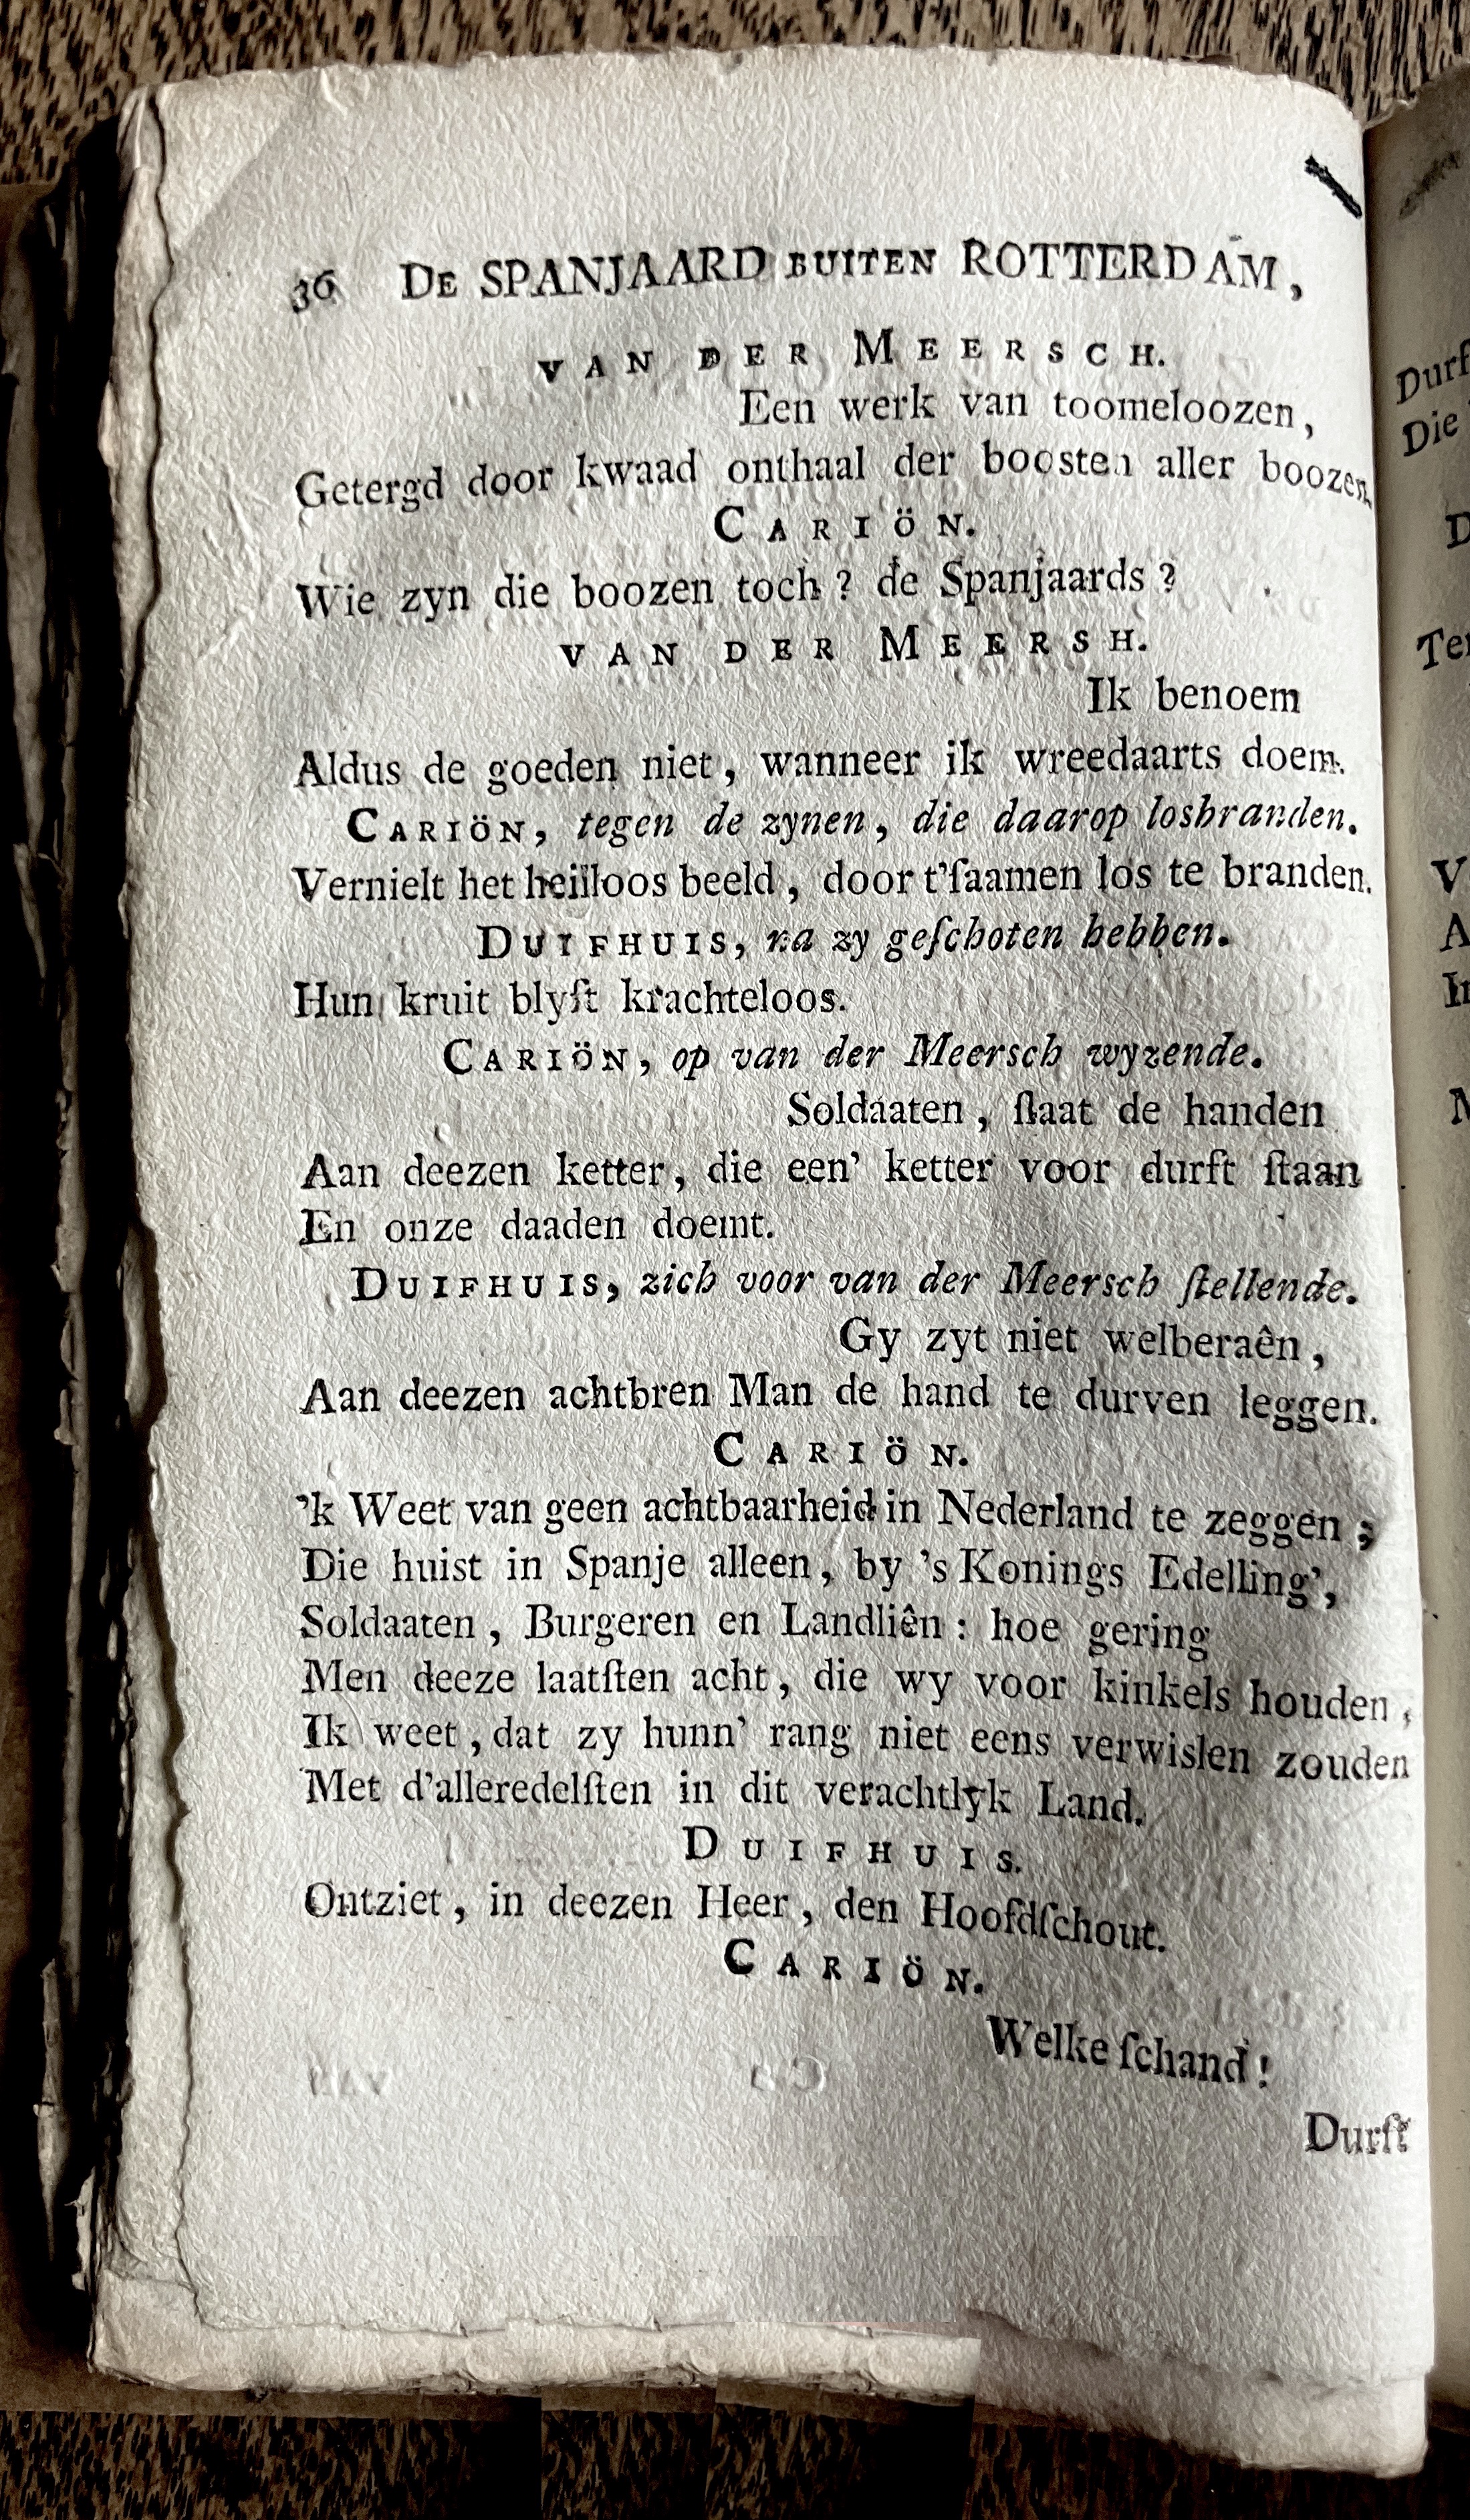 36 DE SPANJAARD BUITEN ROTTERDAM,
VAN DER MEERSCH.
Een werk van toomeloozen,
Getergd door kwaad onthaal der boosten aller boozen.
CARIÖN.
Wie zyn die boozen toch? de Spanjaards?
VAN DER MEERSH.
Ik benoem
Aldus de goeden niet, wanneer ik wreedaarts doem.
CARIÖN, tegen de zynen, die daarop losbranden.
Vernielt het heilloos beeld, door t'ſaamen los te branden.
DUIFHUIS, na zy geſchoten hebben.
Hun kruit blyft krachteloos.
CARIÖN, op van der Meersch wyzende.
Soldaaten, ſlaat de handen
Aan deezen ketter, die een' ketter voor durft ſtaan
En onze daaden doemt.
DUIFHUIS, zich voor van der Meersch ſtellende.
Gy zyt niet welberaên,
Aan deezen achtbren Man de hand te durven leggen.
CARIÖN.
'k Weet van geen achtbaarheid in Nederland te zeggen;
Die huist in Spanje alleen, by 's Konings Edelling',
Soldaaten, Burgeren en Landliên: hoe gering
Men deeze laatſten acht, die wy voor kinkels houden,
Ik weet, dat zy hunn' rang niet eens verwislen zouden
Met d'alleredelſten in dit verachtlyk Land.
DUIFHUIS.
Ontziet, in deezen Heer, den Hoofdſchout.
CARIÖN.
Welke ſchand!
Durft
Durf
Die
D
Ter
V
A
In
M